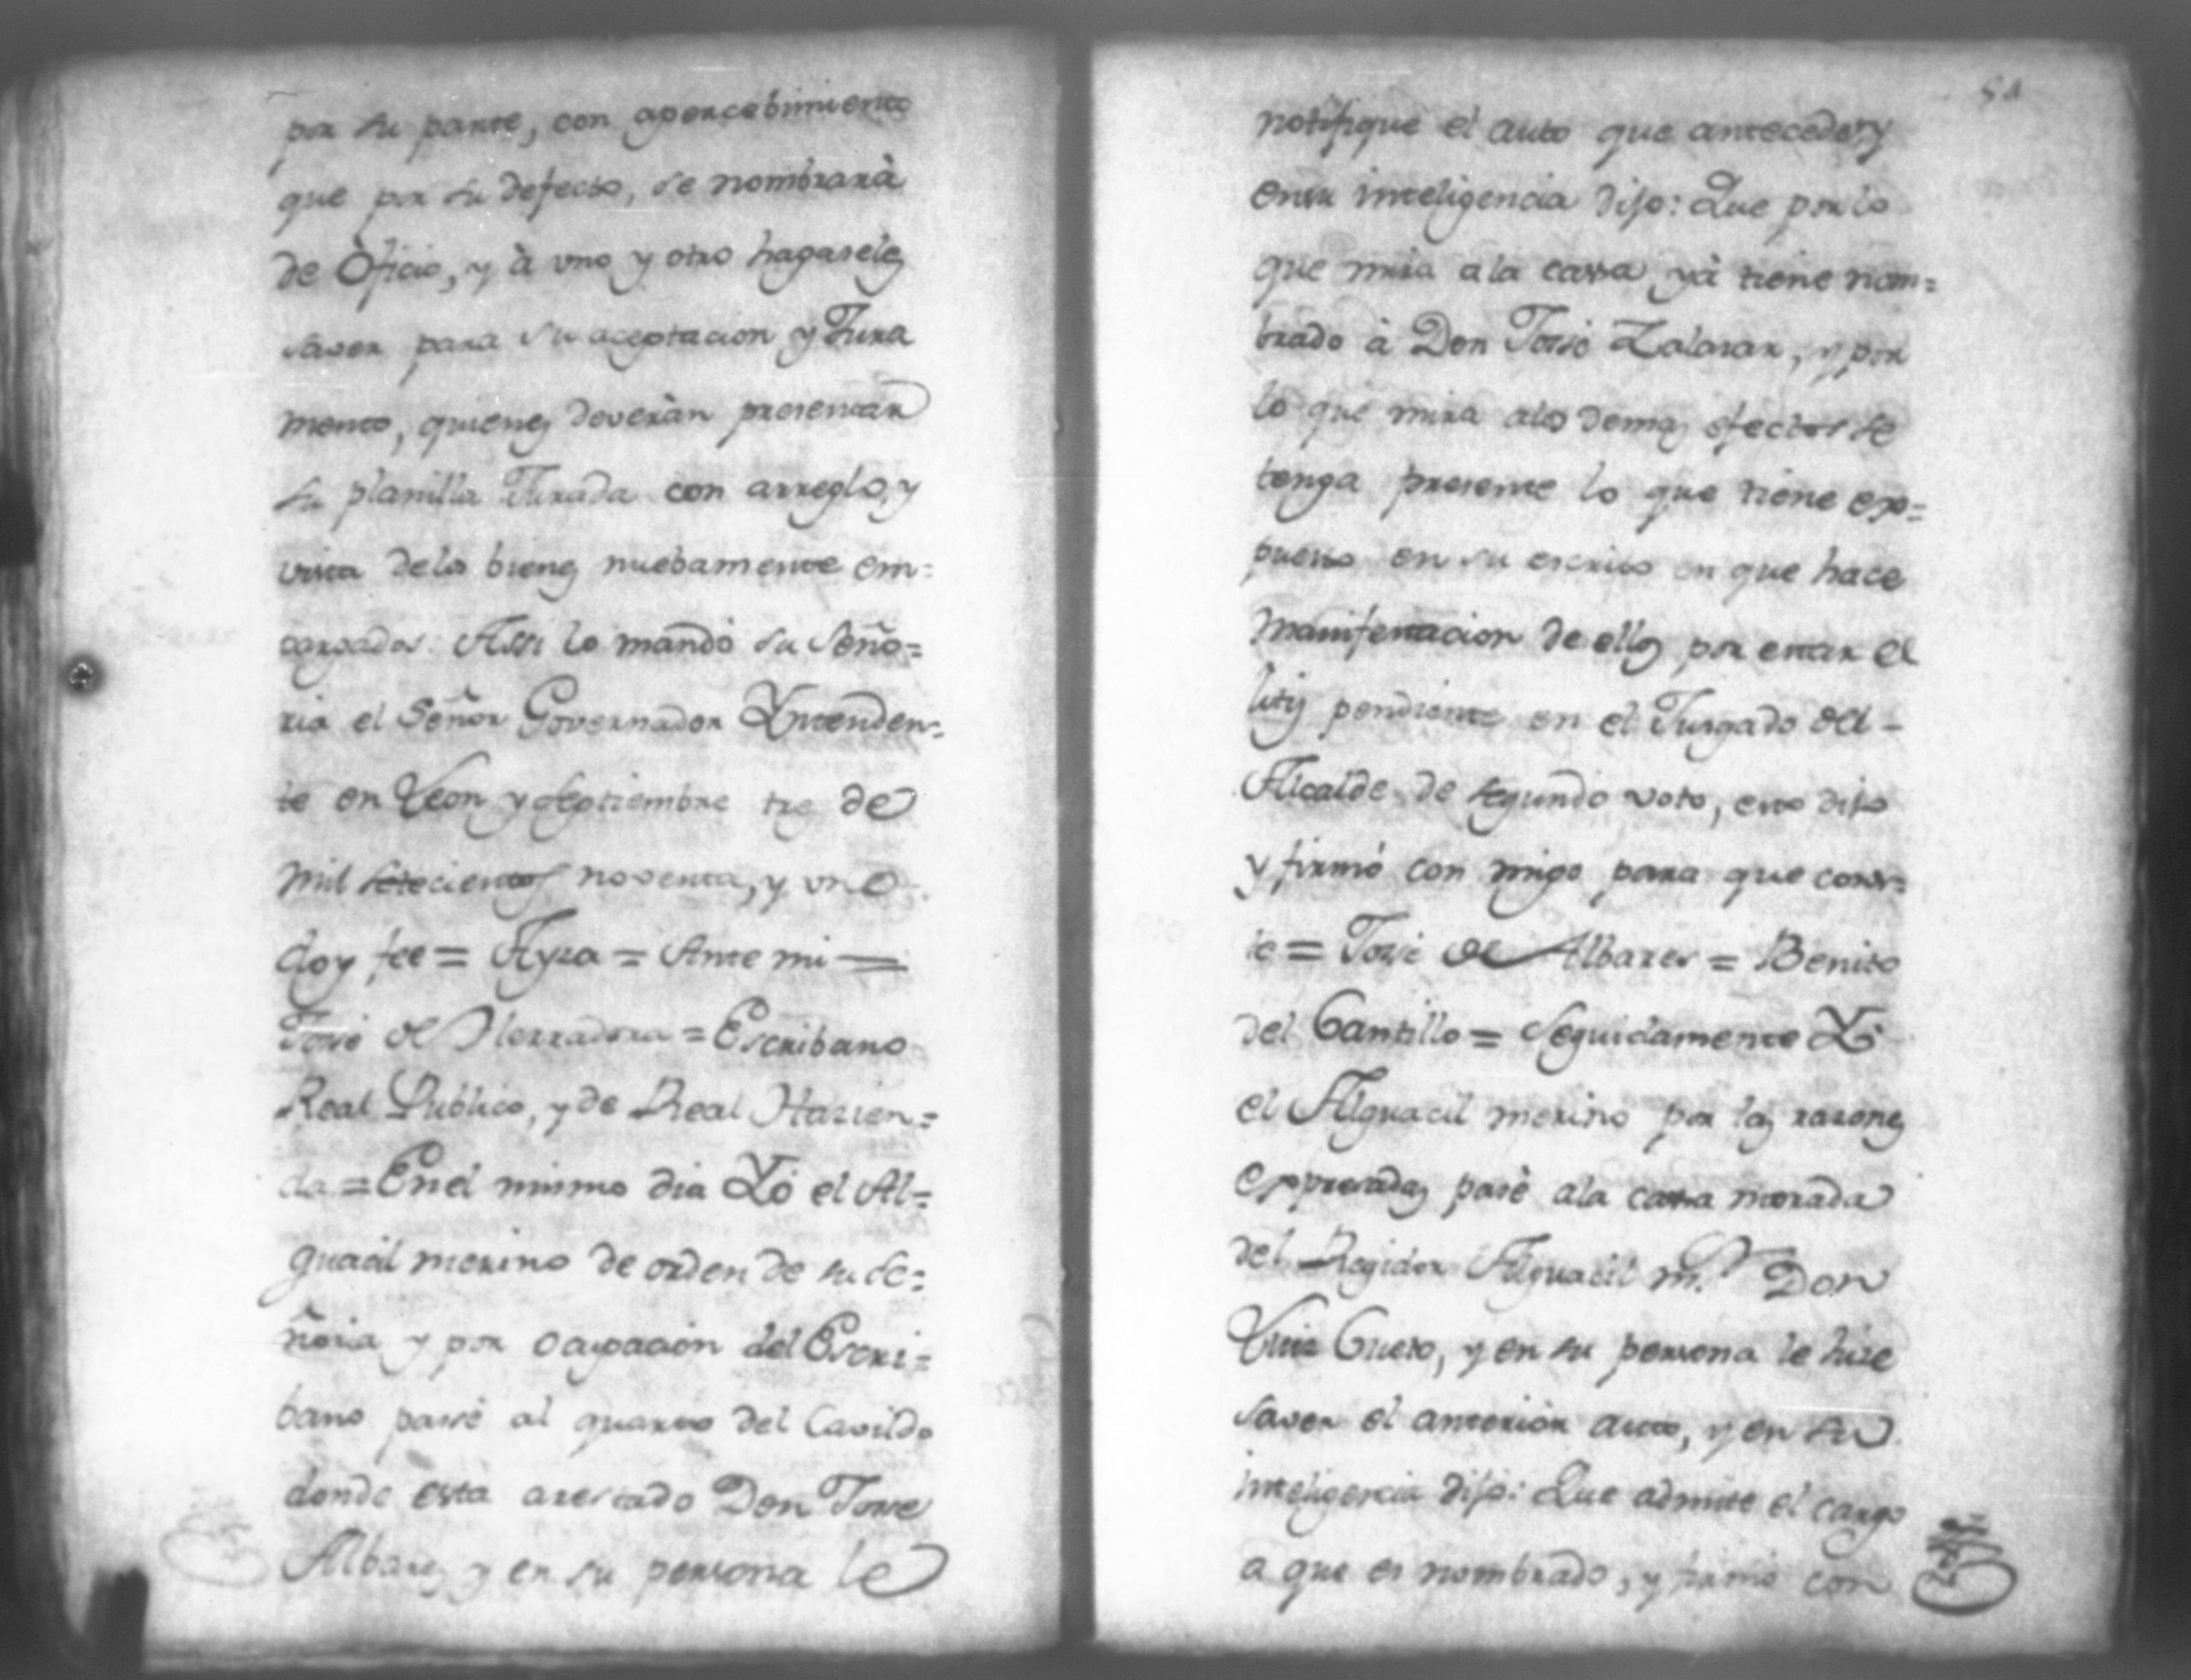 por su parte, con apercebimiento
que por su defecto, se nombrarà
de Òficio, y à uno y otro hagaseles
saver para su aceptacion y Jura
mento, quienes deveràn presentar
su planilla Jurada con arreglo, y
vista delos bienes nuebamente em=
cargados: Assi lo mandò su Seño=
ria el Señor Governador Yntenden=
te en Leon y Septiembre tres de
mil setecientos noventa, y uno
doy fee = Aysa = Ante mi =
José de Herradora = Escribano
Real Publico, y de Real Hazien=
da = En el mismo dia Yó el Al=
guacil merino de orden de su Se=
ñoria y por ocupación del Escri=
bano passé al quarto del Cavildo
donde està arestado Don Josse
Albares y en su persona le
51
notifique el auto que antecede, y
ensu inteligencia dijo: Que por lo
que mira ala cassa yà tiene nom=
brado à Don José Zalasar, y por
lo que mira alos demas efectos se
tenga presente lo que tiene ex=
puesto en su escrito en que hace
manifestacion de ellos por estar el
litis pendiente en el Jusgado del
Alcalde de segundo voto, esto dijo
y firmó con migo para que cons=
te = José de Albares = Benito
del Cantillo = Seguidamente Yó
el Alguacil merino por las razones
expresadas pasè ala cassa morada
del Regidor Alguacil m.or Don
Luis Cueto, y en su persona le hize
saver el anterior auto, y en su
inteligencia dijo: Que admite el cargo
a que es nombrado, y firmó con